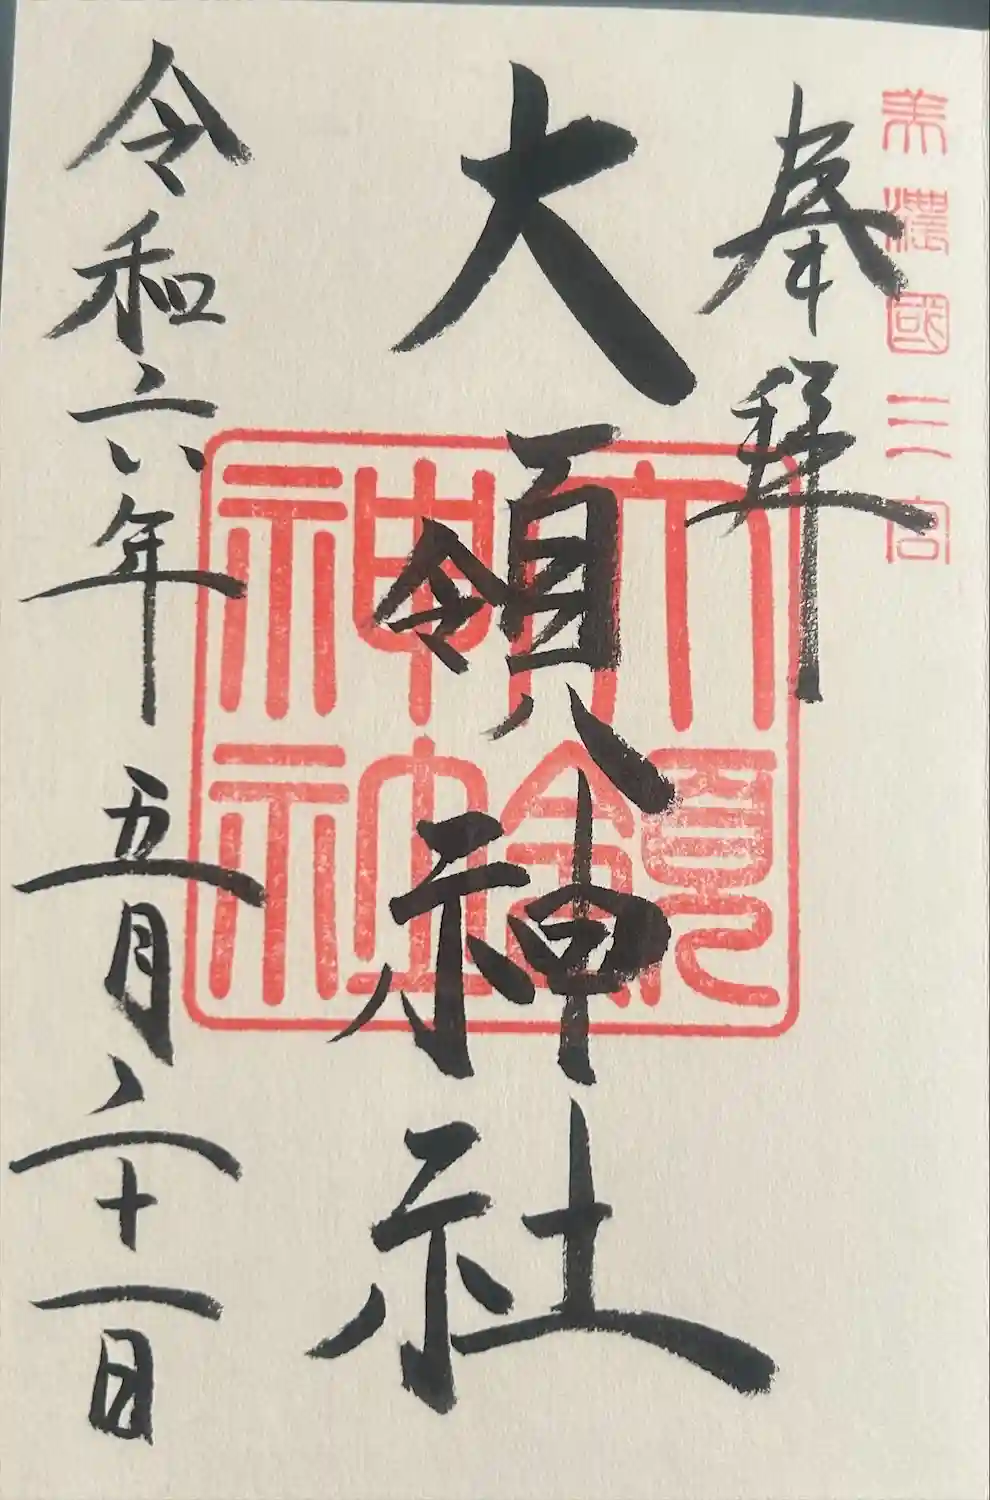 美濃國三宮
奉拝
大領神社
大領神社
令和六年五月二十一日